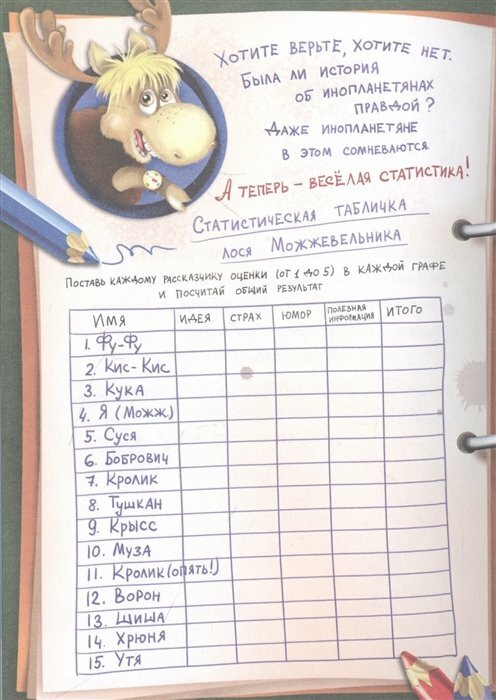 Хотите верьте, хотите нет.
Была ли история
об инопланетянах
правдой?
Даже инопланетяне
в этом сомневаются
А теперь – весёлая статистика!
Статистическая табличка
лося Можжевельника
Поставь каждому рассказчику оценки (от 1 до 5) в каждой графе
и посчитай общий результат
Имя идея страх юмор полезная информация итого
1. Фу-Фу
2. Кис-Кис
3. Кука
4. Я (Можж.)
5. Суся
6. Бобрович
7. Кролик
8. Тушкан
9. Крысс
10. Муза
11. Кролик (опять!)
12. Ворон
13. Шиша
14. Хрюня
15. Утя